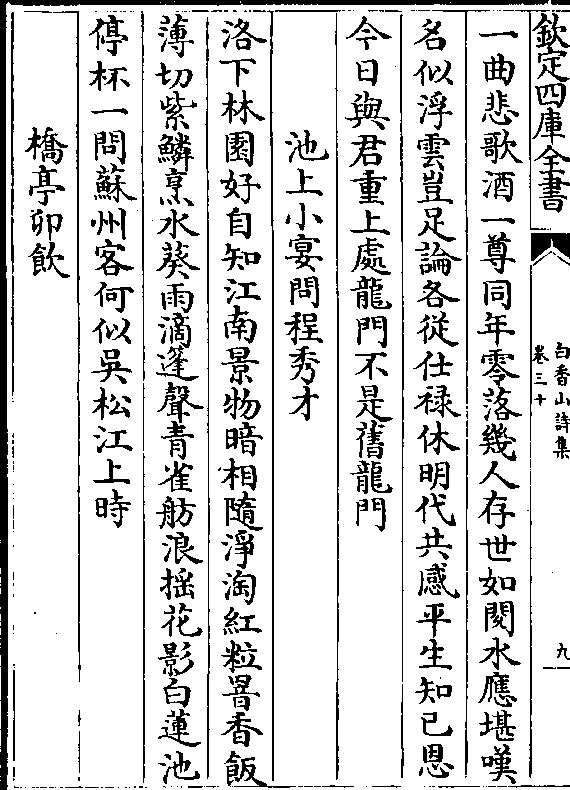 欽定四庫全書
白香山詩集
卷三十
九
一曲悲歌酒一尊同年零落幾人存世如閱水應堪嘆
名似浮雲豈足論各從仕祿休明代共感平生知已恩
今日與君重上處龍門不是舊龍門
池上小宴問程秀才
洛下林園好自知江南景物暗相隨淨淘紅粒罯香飯
薄切紫鱗烹水葵雨滴篷聲青雀舫浪揺花影白蓮池
停杯一問蘇州客何似吳松江上時
橋亭卯飲